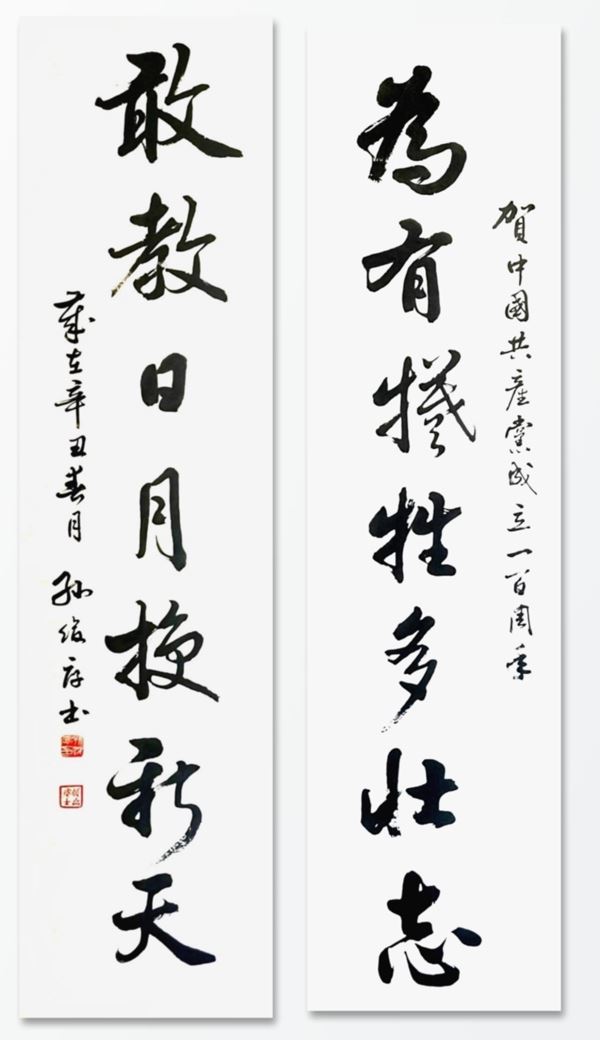 賀中國共產黨成立一百周年
為有犧牲多壯志
敢教日月換新天
歲在辛丑春月 孫俊存书